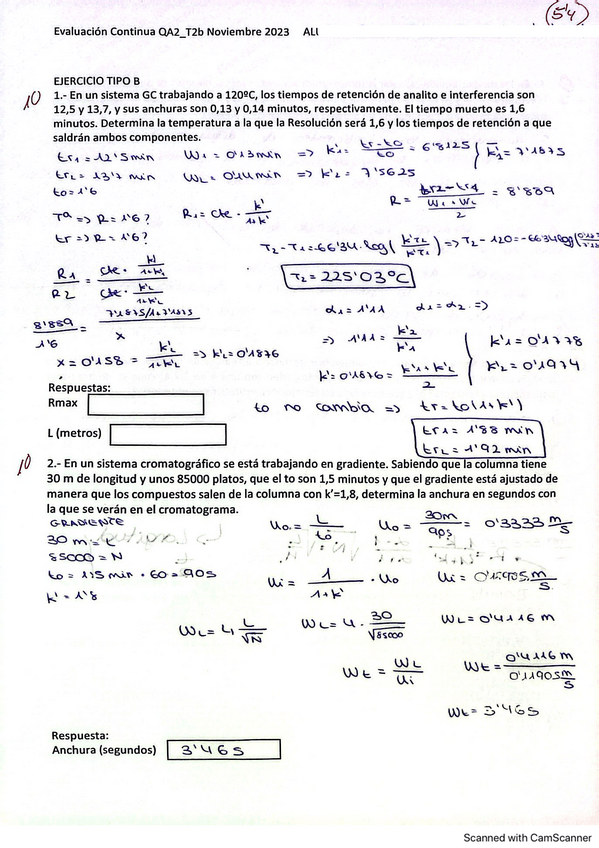 (5'4)
Evaluación Continua QA2_T2b Noviembre 2023 ALU
EJERCICIO TIPO B
10 1.- En un sistema GC trabajando a 120ºC, los tiempos de retención de analito e interferencia son
12,5 y 13,7, y sus anchuras son 0,13 y 0,14 minutos, respectivamente. El tiempo muerto es 1,6
minutos. Determina la temperatura a la que la Resolución será 1,6 y los tiempos de retención a que
saldrán ambos componentes.
tr1 = 12'5 min W1 = 0'13 min => k'1 = tr-to/to = 6'8125
tr2 = 13'7 min W2 = 0'14 min => k'2 = 7'5625
k̄'1 = 7'1875
to = 1'6
R = tr2-tr1/(W1+W2/2) = 8'889
Tª => R = 1'6?
R1 = cte · k'/1+k'
tr => R = 1'6?
T2-T1 = -66'34·log(k'T2/k'T1) => T2-120 = -66'34log(
R1/R2 = cte · k'1/1+k'1 / cte · k'2/1+k'2
T2 = 225'03ºC
8'889/1'6 = 7'1875/1+7'1875 / x
α1 = 1'11 α1 = α2 =>
=> 1'11 = k'2/k'1
k'1 = 0'1778
x = 0'158 = k'2/1+k'2 => k'2 = 0'1876
k' = 0'1876 = k'1+k'2/2
k'2 = 0'1974
Respuestas:
Rmax
to no cambia => tr = to(1+k')
L (metros)
tr1 = 1'88 min
tr2 = 1'92 min
10 2.- En un sistema cromatográfico se está trabajando en gradiente. Sabiendo que la columna tiene
30 m de longitud y unos 85000 platos, que el to son 1,5 minutos y que el gradiente está ajustado de
manera que los compuestos salen de la columna con k'=1,8, determina la anchura en segundos con
la que se verán en el cromatograma.
GRADIENTE
30 m =
85000 = N
to = 1'5 min · 60 = 90s
k' = 1'8
uo = L/to uo = 30m/90s = 0'3333 m/s
ui = 1/1+k' · uo ui = 0'11905 m/s
WL = 4 L/√N WL = 4 · 30/√85000 WL = 0'4116 m
Wt = WL/ui Wt = 0'4116 m/0'1190 m/s
Wt = 3'46s
Respuesta:
Anchura (segundos) 3'46s
Scanned with CamScanner